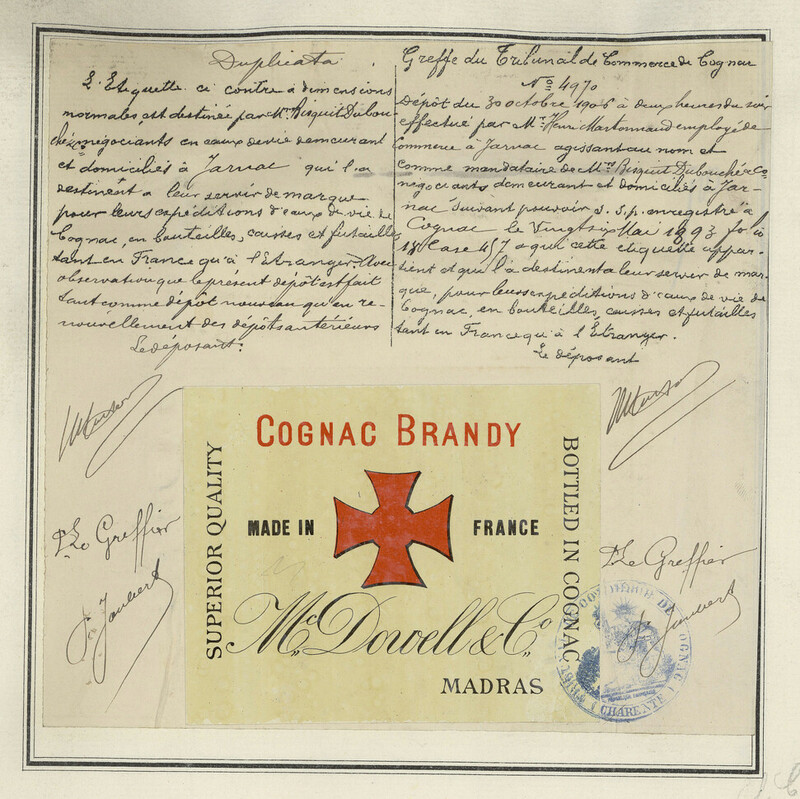 Duplicata
L'Etiquette ci contre à dimensions
normales est destinée par Mrs Bisquit Dubou-
ché négociants en eaux de vie demeurant
et domiciliés à Jarnac qui l'a
destinent a leur servir de marque
pour leurs expéditions d'eaux de vie de
Cognac, en bouteilles, caisses et futailles
tant en France qu'à l'Etranger. Avec
observation que le présent dépôt est fait
tant comme dépôt nouveau qu'en re-
nouvellement des dépôts antérieurs
Le déposant.
Greffe du Tribunal de Commerce de Cognac
No 4970
Dépôt du 30 octobre 1906 à deux heures du soir
effectué par Mr Henri Martonnaud employé de
Commerce à Jarnac agissant au nom et
comme mandataire de Mrs Bisquit Dubouché & Co
négociants demeurant et domiciliés à Jar-
nac suivant pouvoir s.s.p. enregistré à
Cognac le Vingt six Mai 1893 fo
18 Case 457 a qui cette étiquette appar-
tient et qui l'a destinent a leur servir de mar-
que, pour leurs expéditions d'eaux de vie de
Cognac, en bouteilles, caisses et futailles
tant en France qu'à l'Etranger.
Le déposant
COGNAC BRANDY
SUPERIOR QUALITY
MADE IN FRANCE
BOTTLED IN COGNAC
Mc Dowell & Co
MADRAS
Le Greffier
Jaubert
Le Greffier
Jaubert
COGNAC
(CHARENTE)